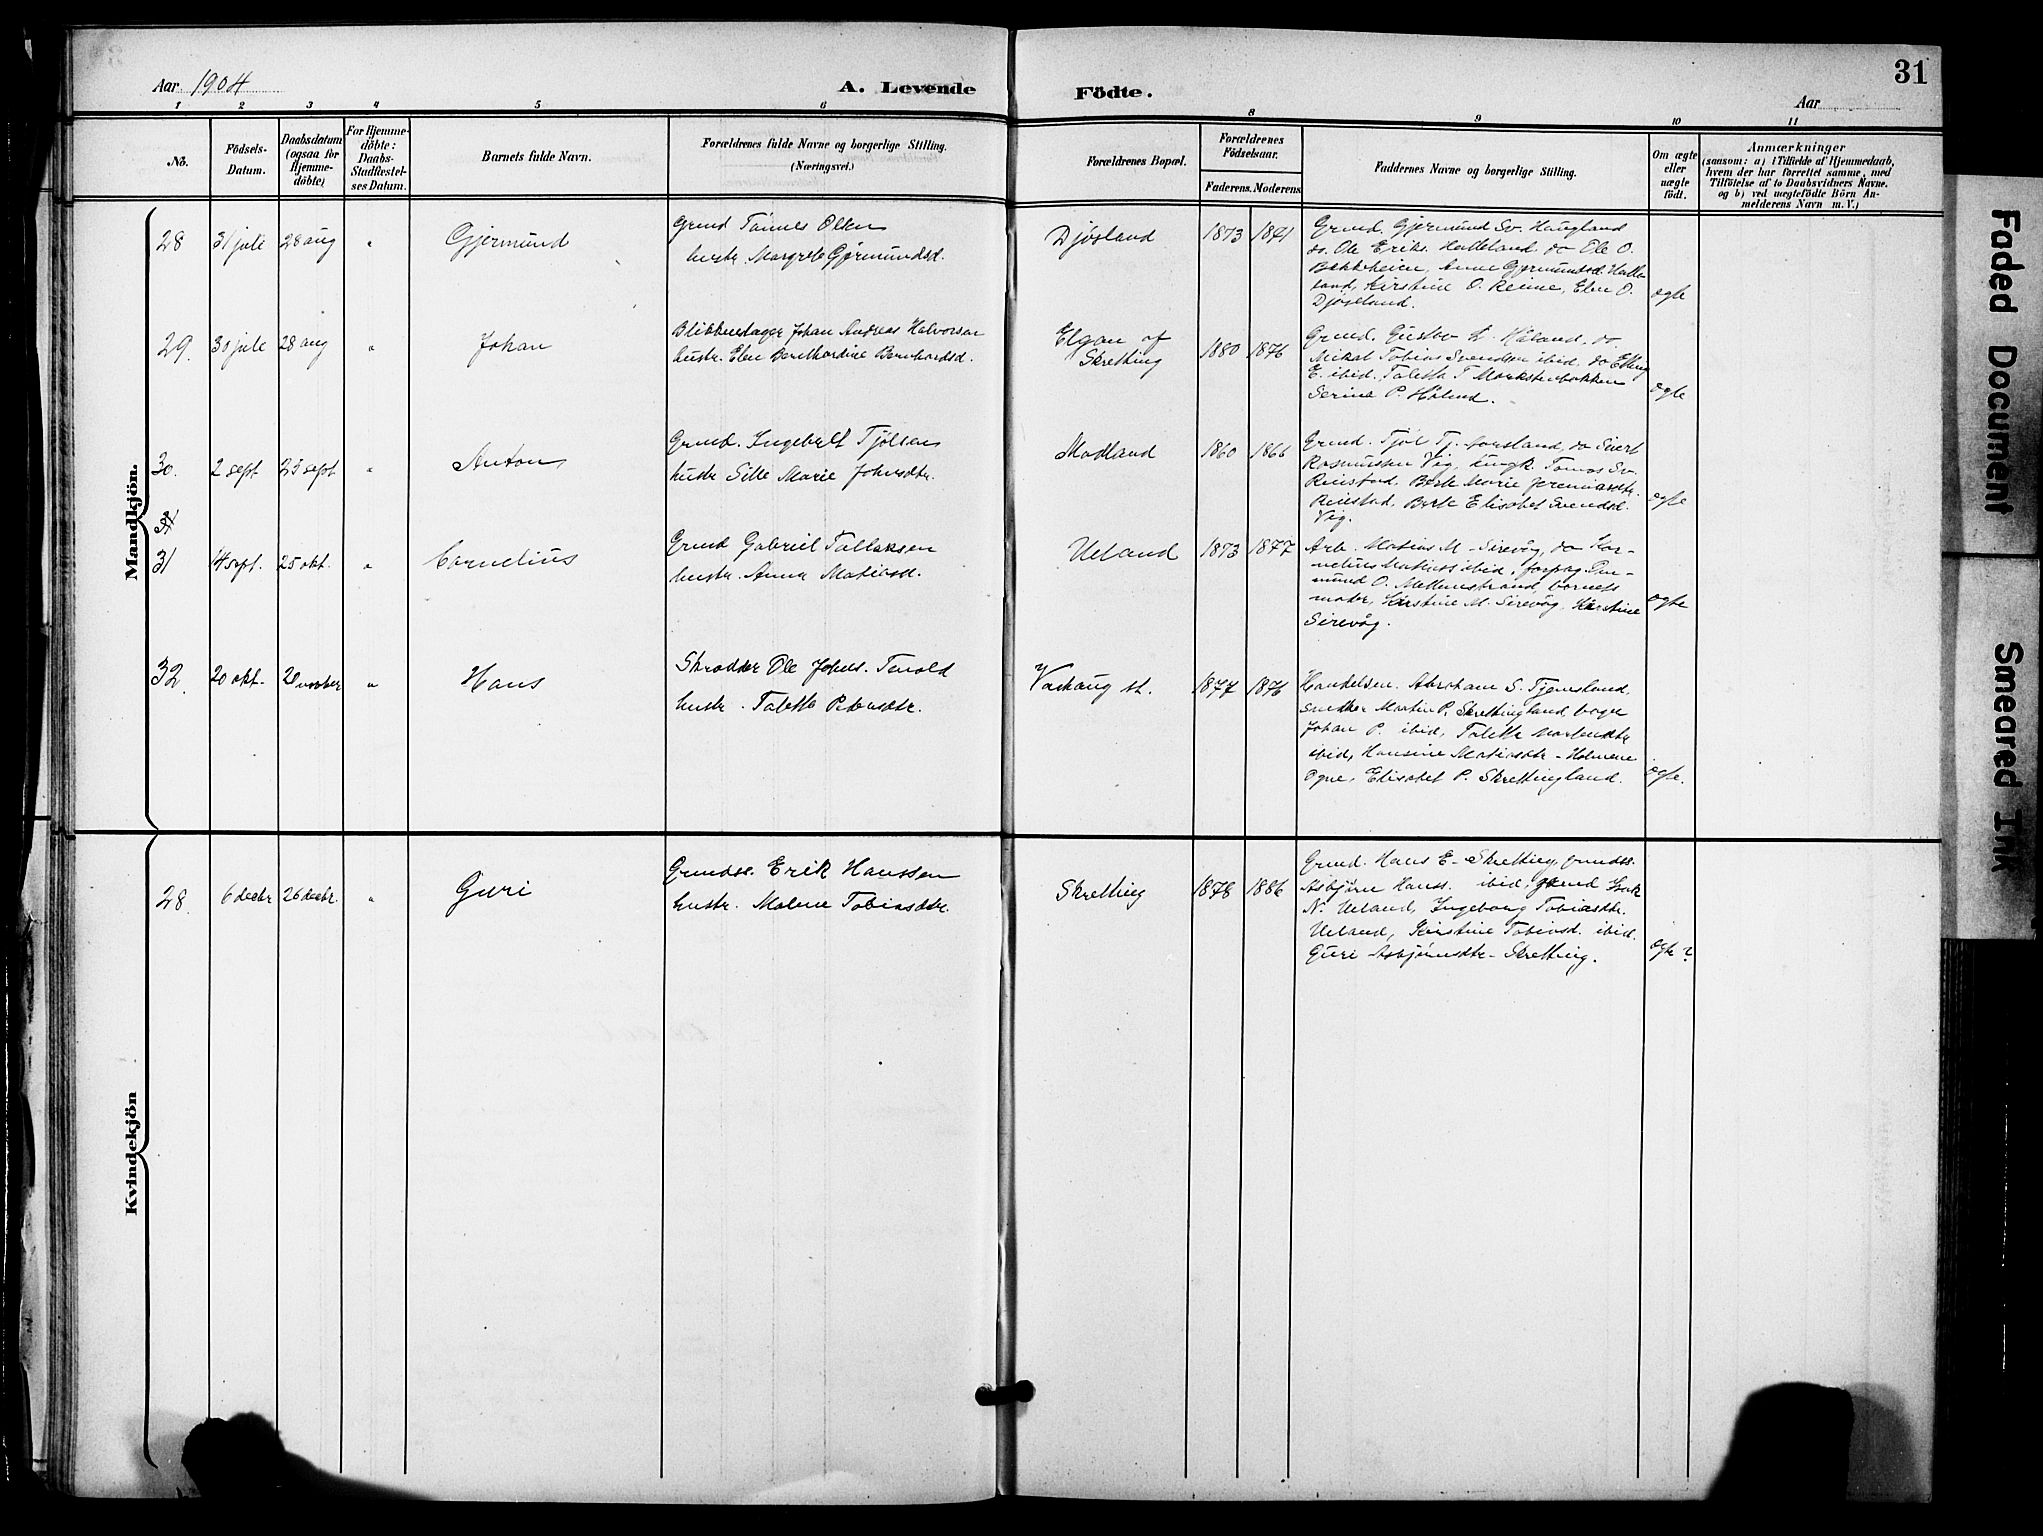 31
Aar 1904
A. Levende Födte.
Aar
1 2 3 4 5 6 8 9 10 11
No.
Födsels-
Datum.
Daabsdatum
(ogsaa for
Hjemme-
döbte)
For Hjemme-
döbte:
Daabs-
Stadfæstel-
ses Datum.
Barnets fulde Navn.
Forældrenes fulde Navne og borgerlige Stilling.
(Næringsvei.)
Forældrenes Bopæl.
Forældrenes
Födselsaar.
Faderens. Moderens
Faddernes Navne og borgerlige Stilling.
Om ægte
eller
uægte
födt.
Anmærkninger
(saasom: a) i Tilfælde af Hjemmedaab,
hvem der har forrettet samme, med
Tilföielse af to Daabsvidners Navne.
og b) ved uægtefödte Börn An-
melderens Navn m. V.)
Mandkjön.
28 31 jule 28 aug " Gjermund
Grmd Tönnes Olsen
hustr. Margrete Gjermundsd.
Djösland 1873 1871
Grmd. Gjermund Sv. Haugland
do. Ole Eriks. Hatteland do Ole O.
Bakkheien, Anne Gjermundsd. Hatte-
land, Kirstine O. Reime, Elen O.
Djösland.
ægte
29. 30 jule 28 aug " Johan
Blikkenslager Johan Andreas Halvorsen
hustr. Elen Bernthardine Bernhardsd.
Elgan af
Skretting
1880 1876
Grmd. Gustav L. Håland. do
Mikal Tobias Svendsen ibid. do Elling
E. ibid. Taletta T
Serina P. Håland.
ægte
30. 2 sept 25 sept " Anton
Grmd. Ingebret Tjölsen
hustr Sille Marie Johnsdtr.
Modland 1860 1866
Grmd. Tjöl Tj. do Sivert
Rasmussen Vig, ungk. Tomas Sv.
Reiestad. Berte Marie Jeremiasdtr.
Reiestad, Berte Elisabet Svendsd.
Vig.
ægte
31 14 sept. 25 okt. " Cornelius
Grmd Gabriel Tollaksen
hustr. Anna Matiasd.
Ueland 1873 1877
Arb. Matias M. Sirevåg, do Kor-
nelius Matiass ibid, forpag.
mund O. Mattinstrand, barnets
moder, Kirstine M. Sirevåg. Kirstine
Sirevåg.
ægte
32. 20 okt. 20 novber " Hans
Skrædder Ole Johns. Tenold
hustr. Taletta Petersdtr.
Varhaug st. 1877 1876
Handelsm. Abraham S. Tjemsland,
snedker Martin P. Skrettingland, bager
Johan P. ibid, Taletta Mortensdtr
ibid, Hansine Matiasdtr - Holmene
Ogne, Elisabet P. Skrettingland.
ægte.
Kvindekjön
28. 6 decbr 26 decbr. " Guri
Grmdsø. Erik Hanssen
hustr. Malene Tobiasdtr.
Skretting 1878 1886
Grmd. Hans E. Skretting, grmdss.
Asbjörn Hanss. ibid, grmd Isak
N. Ueland, Ingeborg Tobiasdtr.
Ueland, Kirstine Tobiasd. ibid.
Guri Asbjörnsdtr. Skretting.
ægte?
Faded Document
Smeared Ink